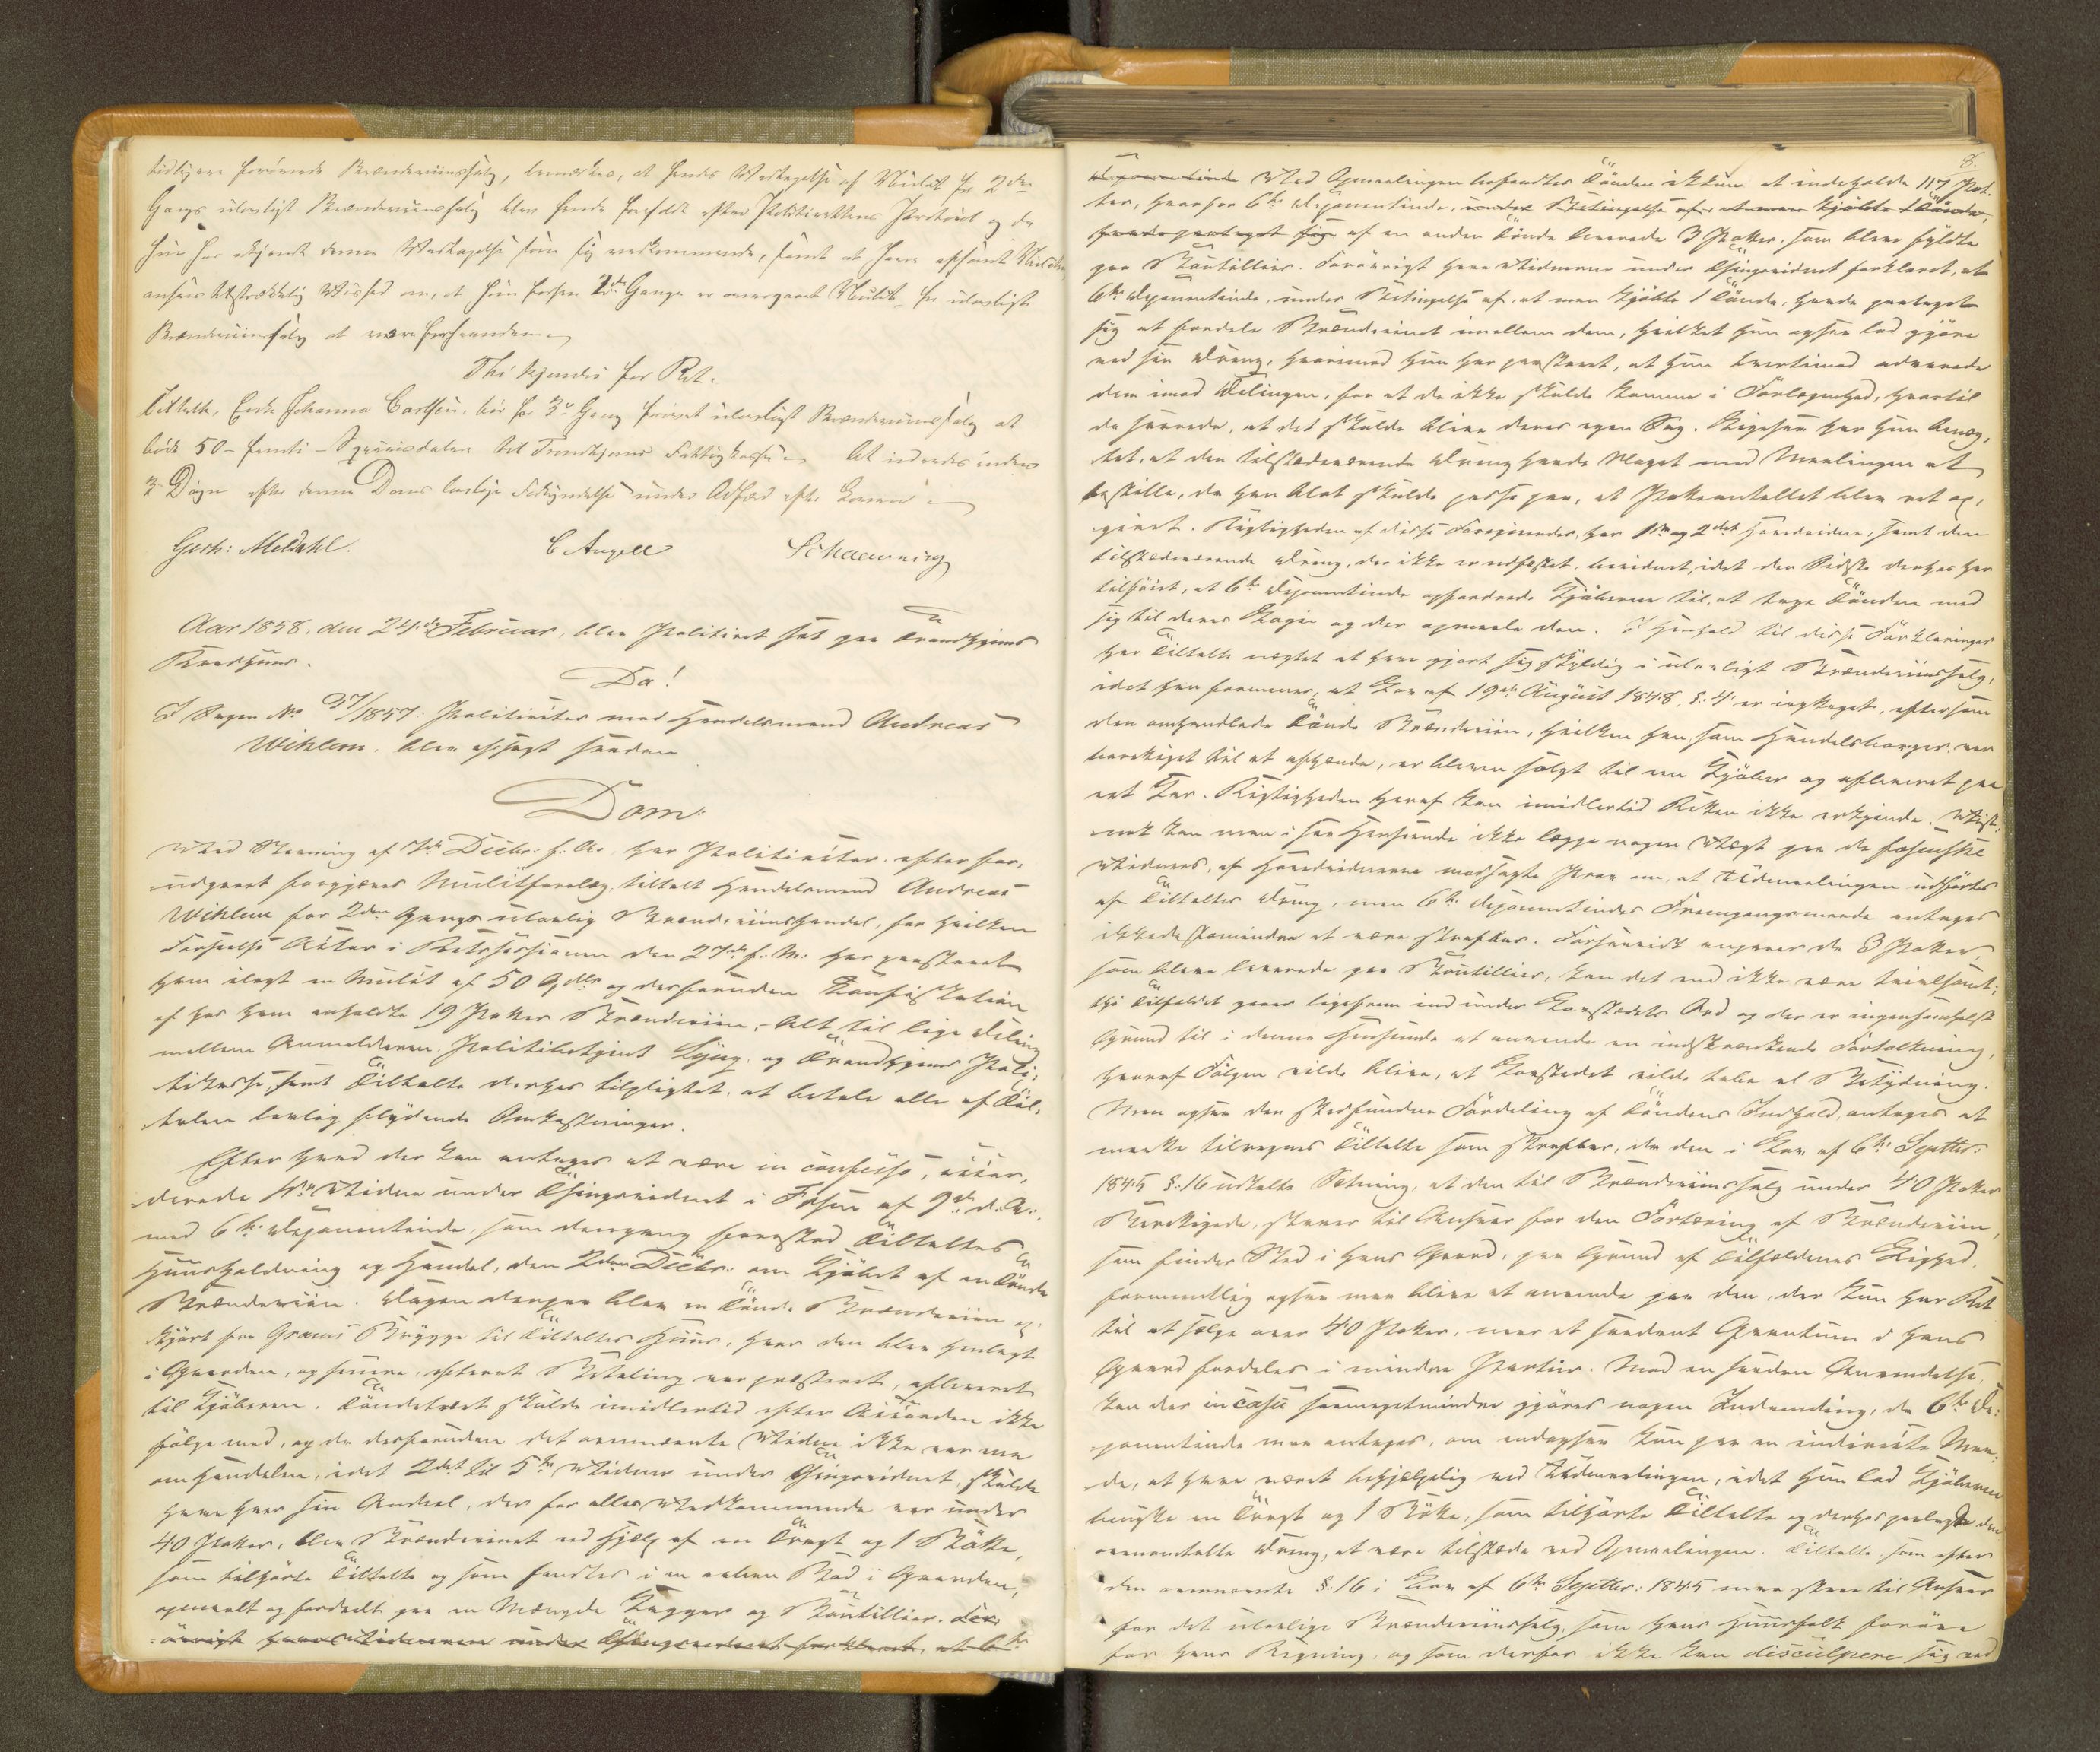 tidligere forövede Brændeviinssalg, bemærkes, at hendes Vedtagelse af Mulct for 2den
Gangs ulovligt Brændeviinssalg blev hende forholdt efter Politirettens Protocol og da
hun har erkjendt denne Vedtagelse som sig vedkommende, samt at have afsonet Mulcten
ansees tilstrækkelig Vished om, at hun forhen 2de Gange er overgaaet Mulct for ulovligt
Brændeviinssalg at være forhaanden.
Thi kjendes for Ret.
Tiltalte, Enke Johanna Carlsen, bör for 3die Gang forövet ulovligt Brændeviinssalg at
böde 50 - femti - Speciesdaler til Trondhjems Fattigkasse. At udredes inden
3 Dögn efter denne Doms lovlige Forkyndelse under Adfærd efter Loven.
Gerh: Meldahl. C Angell Schaanning
Aar 1858, den 24de Februar, blev Politiret sat paa Trondhjems
Raadhuus.
Da!
I Sagen No 37/1857: Politiactor mod Handelsmand Andreas
Wiklem, blev afsagt saadan
Dom:
Ved Stevning af 7de Decbr: f: A: har Politiactor, efter for-
udgaaet forgjæves Mulctforelæg, tiltalt Handelsmand Andreas
Wiklem for 2den Gangs ulovlig Brændeviinshandel, for hvilken
Forseelse Actor i Retssessionen den 27de f: M: har paastaaet
ham ilagt en Mulct af 50 Spdlr og desforuden Confiskation
af hos ham anholdte 19 Potter Brændeviin, - Alt til lige Deling
mellem Anmelderen, Politibetjent Lyng, og Trondhjems Poli-
tikasse, samt Tiltalte derhos tilpligtet, at betale alle af Til-
talen lovlig flydende Omkostninger.
Efter hvad der kan antages at være in confesso, accor-
derede 1ste Vidne under Thingsvidnet i Fosen af 9de d: M:,
med 6te Deponentinde, som dengang forestod Tiltaltes
Huusholdning og Handel, den 2den Decbr: om Kjöbet af en Tönde
Brændeviin. Dagen derpaa blev en Tönde Brændeviin af-
kjört fra Grams Brygge til Tiltaltes Huus, hvor den blev henlagt
i Gaarden, og senere, efterat Betaling var præsteret, afleveret
til Kjöberen. Töndetræet skulde imidlertid efter Accorden ikke
fölge med, og da desforuden det ovennævnte Vidne ikke var ene
om Handelen, idet 2det til 5te Vidner under Thingsvidnet, skulde
have hver sin Andeel, der for alle Vedkommende var under
40 Potter, blev Brændevinet ved Hjælp af en Tragt og 1 Bötte,
som tilhörte Tiltalte og som fandtes i en aaben Bod i Gaarden,
opmaalt og fordeelt paa en Mængde Kagger og Bouteillier. For-
övrigt have Vidnerne under Thingsvidnet forklaret, at 6te
8.
Deponentinde Ved Opmaalingen befandtes Tönden ikkun at indeholde 117 Pot-
ter, hvorfor 6te Deponentinde, under Betingelse af, at man kjöbte 1 Tönde,
havde paataget sig af en anden Tönde leverede 3 Potter, som bleve fyldte
paa Bouteillier. Forövrigt have Vidnerne under Thingsvidnet forklaret, at
6te Deponentinde, under Betingelse af, at man kjöbte 1 Tönde, havde paataget
sig at fordele Brændevinet imellem dem, hvilket hun ogsaa lod gjöre
ved sin Dreng, hvorimod hun har paastaaet, at hun tvertimod advarede
dem imod Delingen, for at de ikke skulde komme i Forlegenhed, hvortil
de svarede, at det skulde blive deres egen Sag. Ligesaa har hun benæg-
tet, at den tilstedeværende Dreng havde Noget med Maalingen at
bestille, da han blot skulde passe paa, at Potteantallet blev ret op-
givet. Rigtigheden af disse Foregivender, har 1ste og 2det Hovedvidne, samt den
tilstedeværende Dreng, der ikke er edfæstet, bevidnet, idet den Sidste derhos har
tilföiet, at 6te Deponentinde opfordrede Kjöberne til, at tage Tönden med
sig til deres Logie og der opmaale den. I Henhold til disse Forklaringer
har Tiltalte nægtet at have gjort sig skyldig i ulovligt Brændeviinssalg,
idet han formener, at Lov af 19de August 1848, §: 4 er iagttaget, eftersom
den omhandlede Tönde Brændeviin, hvilken han, som Handelsborger, var
berettiget til at afhænde, er bleven solgt til een Kjöber og afleveret paa
eet Kar. Rigtigheden heraf kan imidlertid Retten ikke erkjende. Vist-
nok kan man i saa Henseende ikke lægge nogen Vægt paa de fosenske
Vidners, af Hovedvidnerne modsagte Prov om, at Udmaalingen udförtes
af Tiltaltes Dreng, men 6te Deponentindes Fremgangsmaade antages
ikkedestomindre at være strafbar. Forsaavidt angaaer de 3 Potter,
som bleve leverede paa Bouteillier, kan det end ikke være tvivlsomt;
thi Tilfældet gaaer ligefrem ind under Lovstedets Ord og der er ingensomhelst
Grund til i denne Henseende at anvende en indskrænkende Fortolkning,
hvoraf Fölgen vilde blive, at Lovstedet vilde tabe al Betydning.
Men ogsaa den stedfundne Fordeling af Töndens Indhold, antages at
maatte tilregnes Tiltalte som strafbar, da den i Lov af 6te Septbr:
1845 §: 16 udtalte Sætning, at den til Brændeviinssalg under 40 Potter
Berettigede, staaer til Ansvar for den Fortæring af Brændeviin,
som finder Sted i hans Gaard, paa Grund af Tilfældenes Liighed,
formeentlig ogsaa maa blive at anvende paa den, der kun har Ret
til at sælge over 40 Potter, naar et saadant Qvantum i hans
Gaard fordeles i mindre Partier. Mod en saadan Anvendelse,
kan der in casu saameget mindre gjöres nogen Indvending, da 6te De-
ponentinde maa antages, om endogsaa kun paa en indirecte Maa-
de, at have været behjælpelig ved Udmaalingen, idet hun lod Kjöberne
benytte en Tragt og 1 Bötte, som tilhörte Tiltalte og derhos paalagde den
ovenomtalte Dreng, at være tilstede ved Opmaalingen. Tiltalte som efter
den ovennævnte §: 16 i Lov af 6te Septbr: 1845 maa staae til Ansvar
for det ulovlige Brændeviinssalg, som hans Huusfolk foröve
for hans Regning, og som derfor ikke kan disculpere sig ved